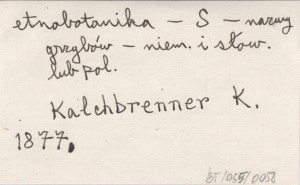 etnobotanika – S – nazwy
grzybów – niem. i słow.
lub pol.
Kalchbrenner K.
1877.
BT/035/0058